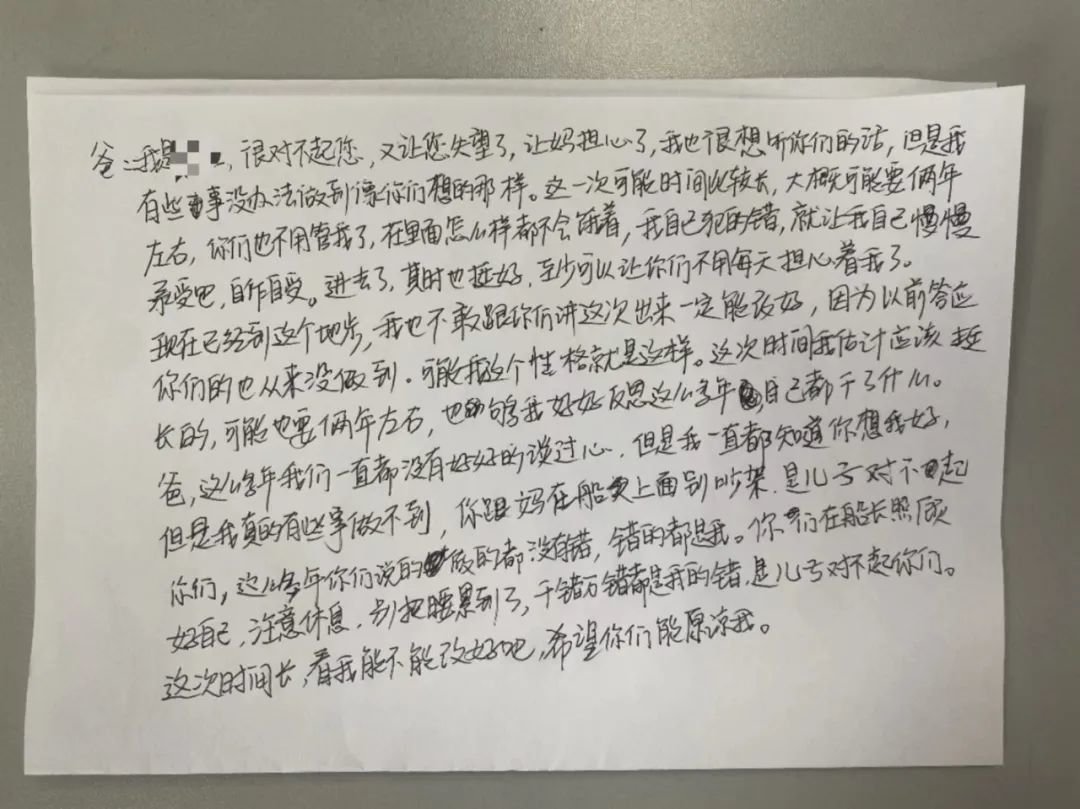 爸：我是，很对不起您，又让您失望了，让妈担心了，我也很想听你们的话，但是我
有些事没办法做到像你们想的那样。这一次可能时间比较长，大概可能要俩年
左右，你们也不用管我了，在里面怎么样都不会饿着，我自己犯的错，就让我自己慢慢
承受吧，自作自受。进去了，其时也挺好，至少可以让你们不用每天担心着我了。
现在已经到这个地步，我也不敢跟你们讲这次出来一定能改好，因为以前答应
你们的也从来没做到．可能我这个性格就是这样。这次时间我估计应该挺
长的，可能也要俩年左右，也够我好好反思这么多年自己都干了什么。
爸，这么多年我们一直都没有好好的谈过心．但是我一直都知道你想我好，
但是我真的有些事做不到，你跟妈在船上面别吵架．是儿子对不起
你们，这么多年你们说的做的都没有错，错的都是我。你们在船长照顾
好自己，注意休息．别把腰累到了，千错万错都是我的错，是儿子对不起你们。
这次时间长，看我能不能改好吧，希望你们能原谅我。